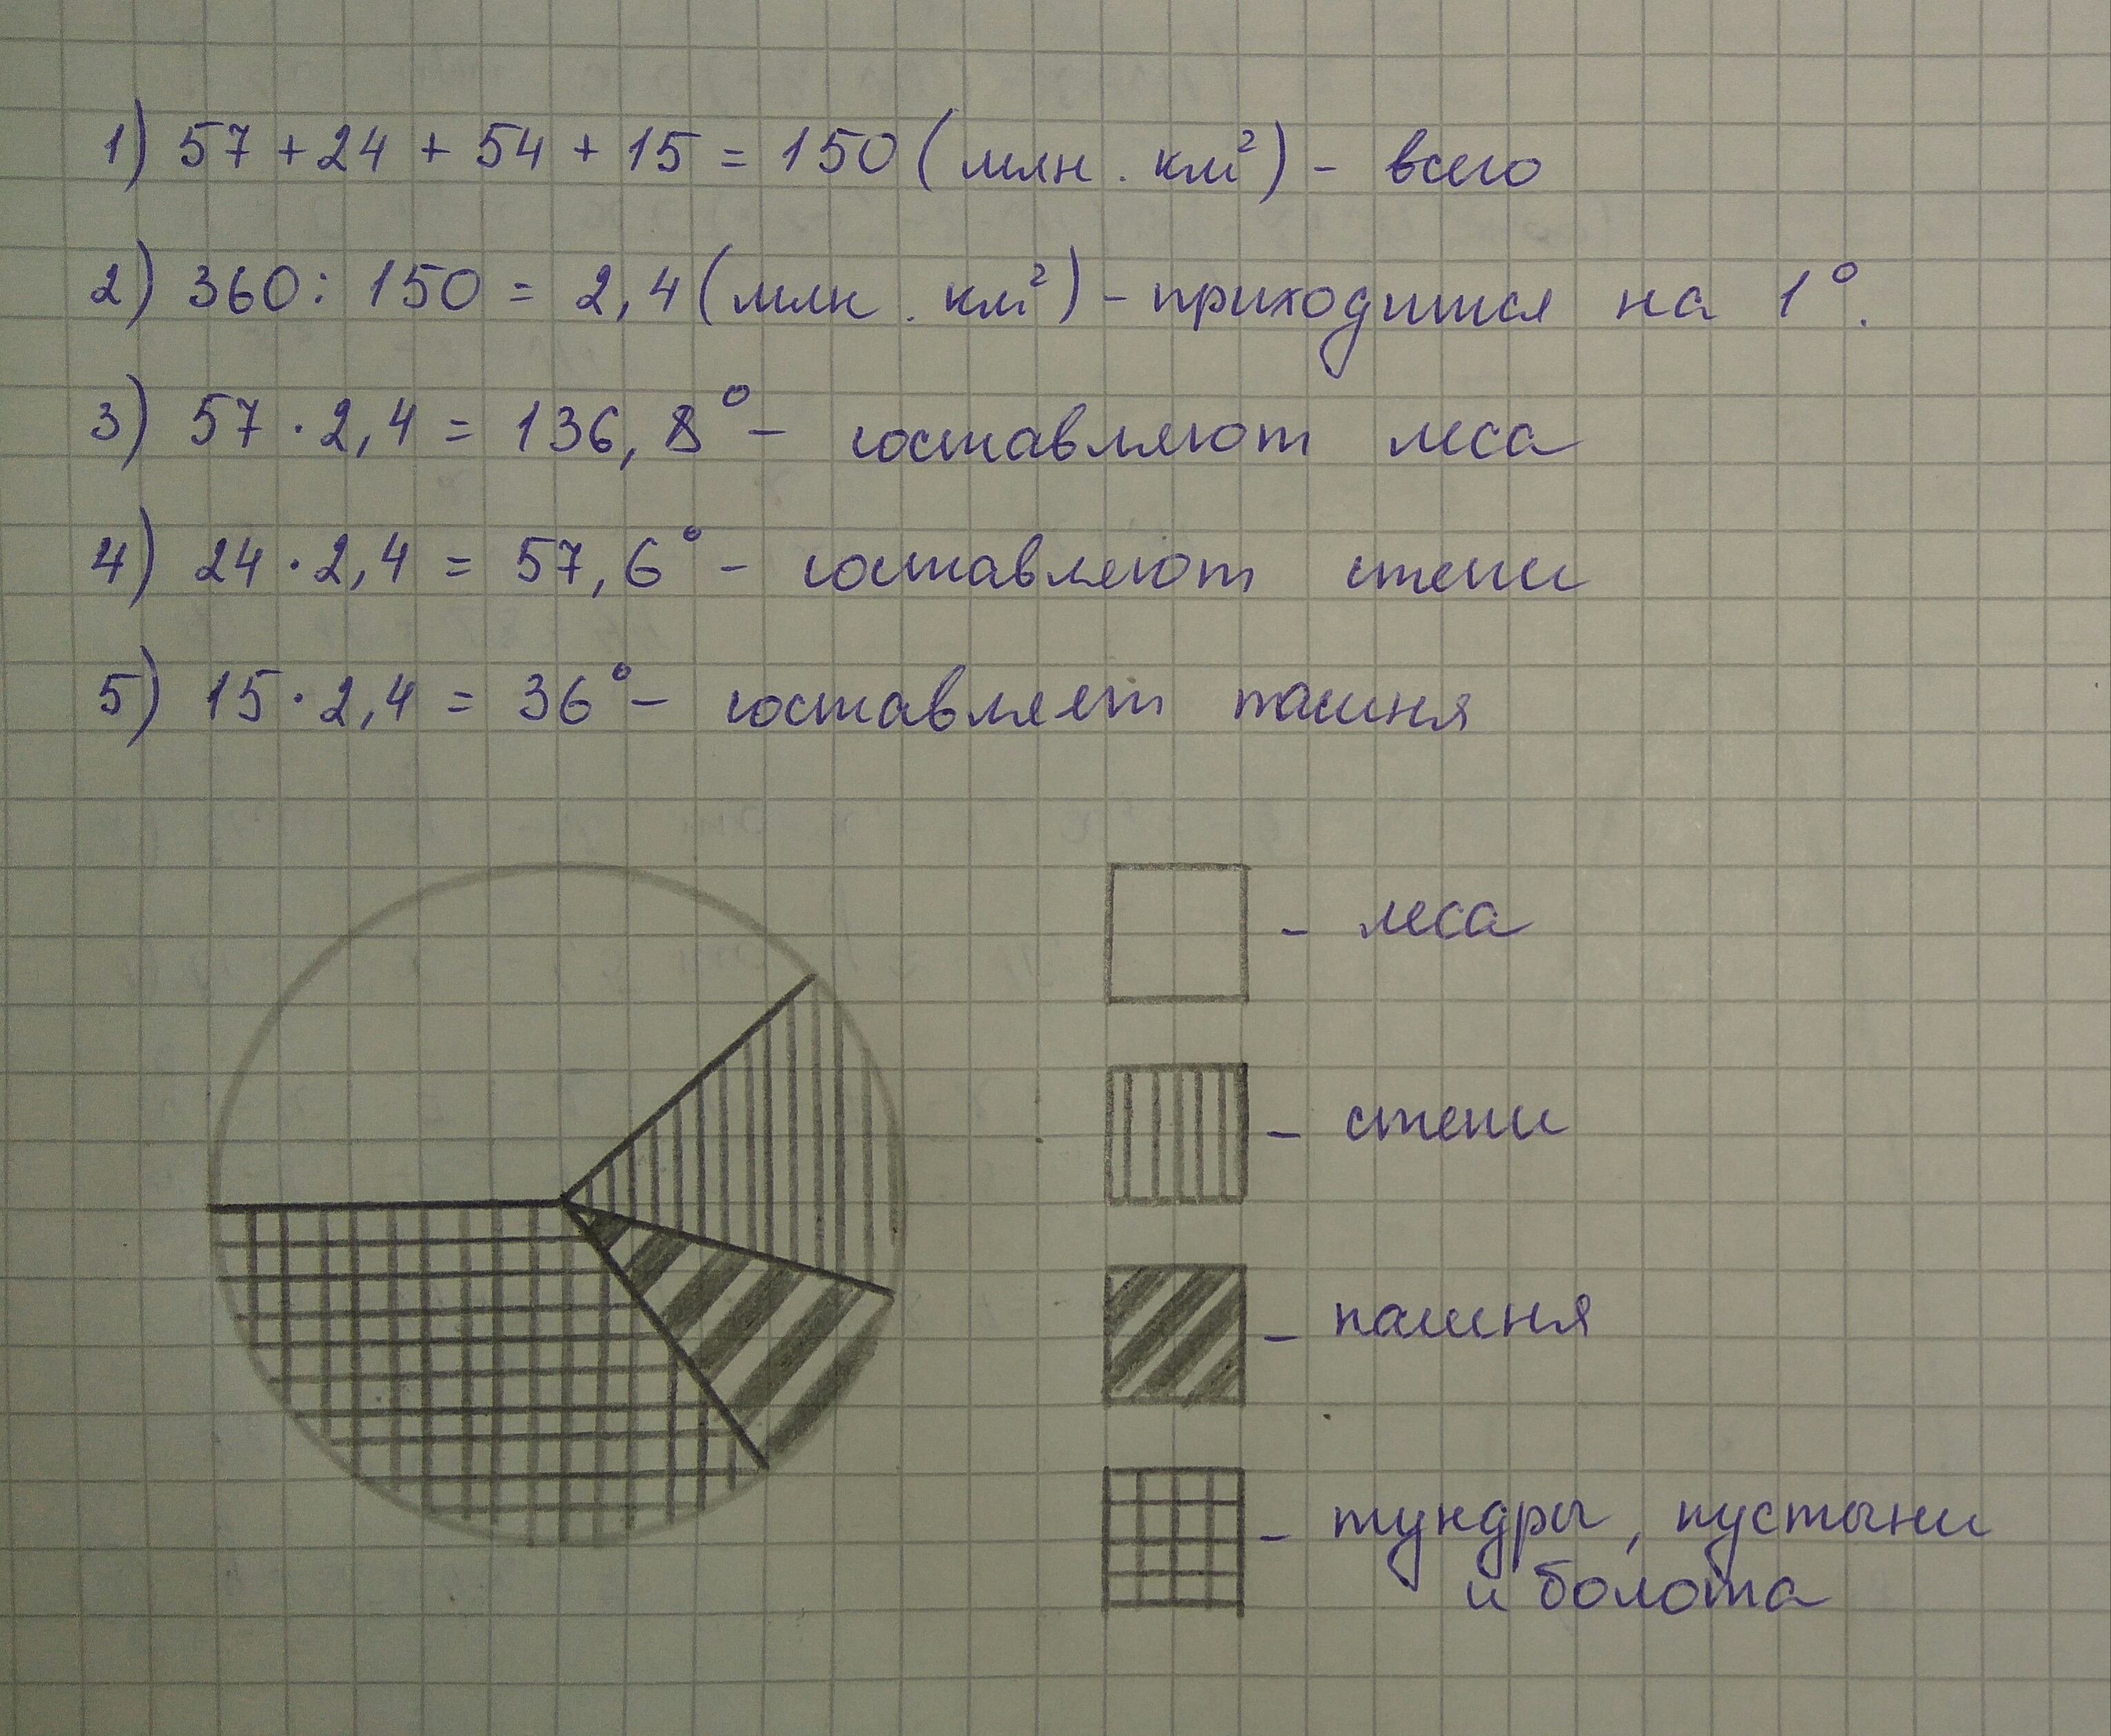 1) 57 + 24 + 54 + 15 = 150 (млн. км²) - всего
2) 360 : 150 = 2,4 (млн. км²) - приходится на 1°.
3) 57 · 2,4 = 136,8° - составляют леса
4) 24 · 2,4 = 57,6° - составляют степи
5) 15 · 2,4 = 36° - составляет пашня
- леса
- степи
- пашня
- тундры, пустыни
и болота